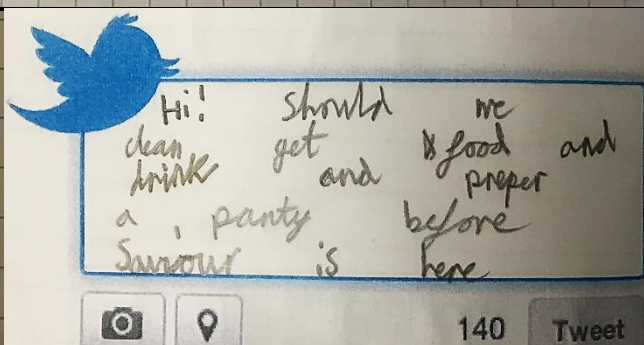 Hi! should we
clean get food and
drink and preper
a party before
Saviour is here
140 Tweet